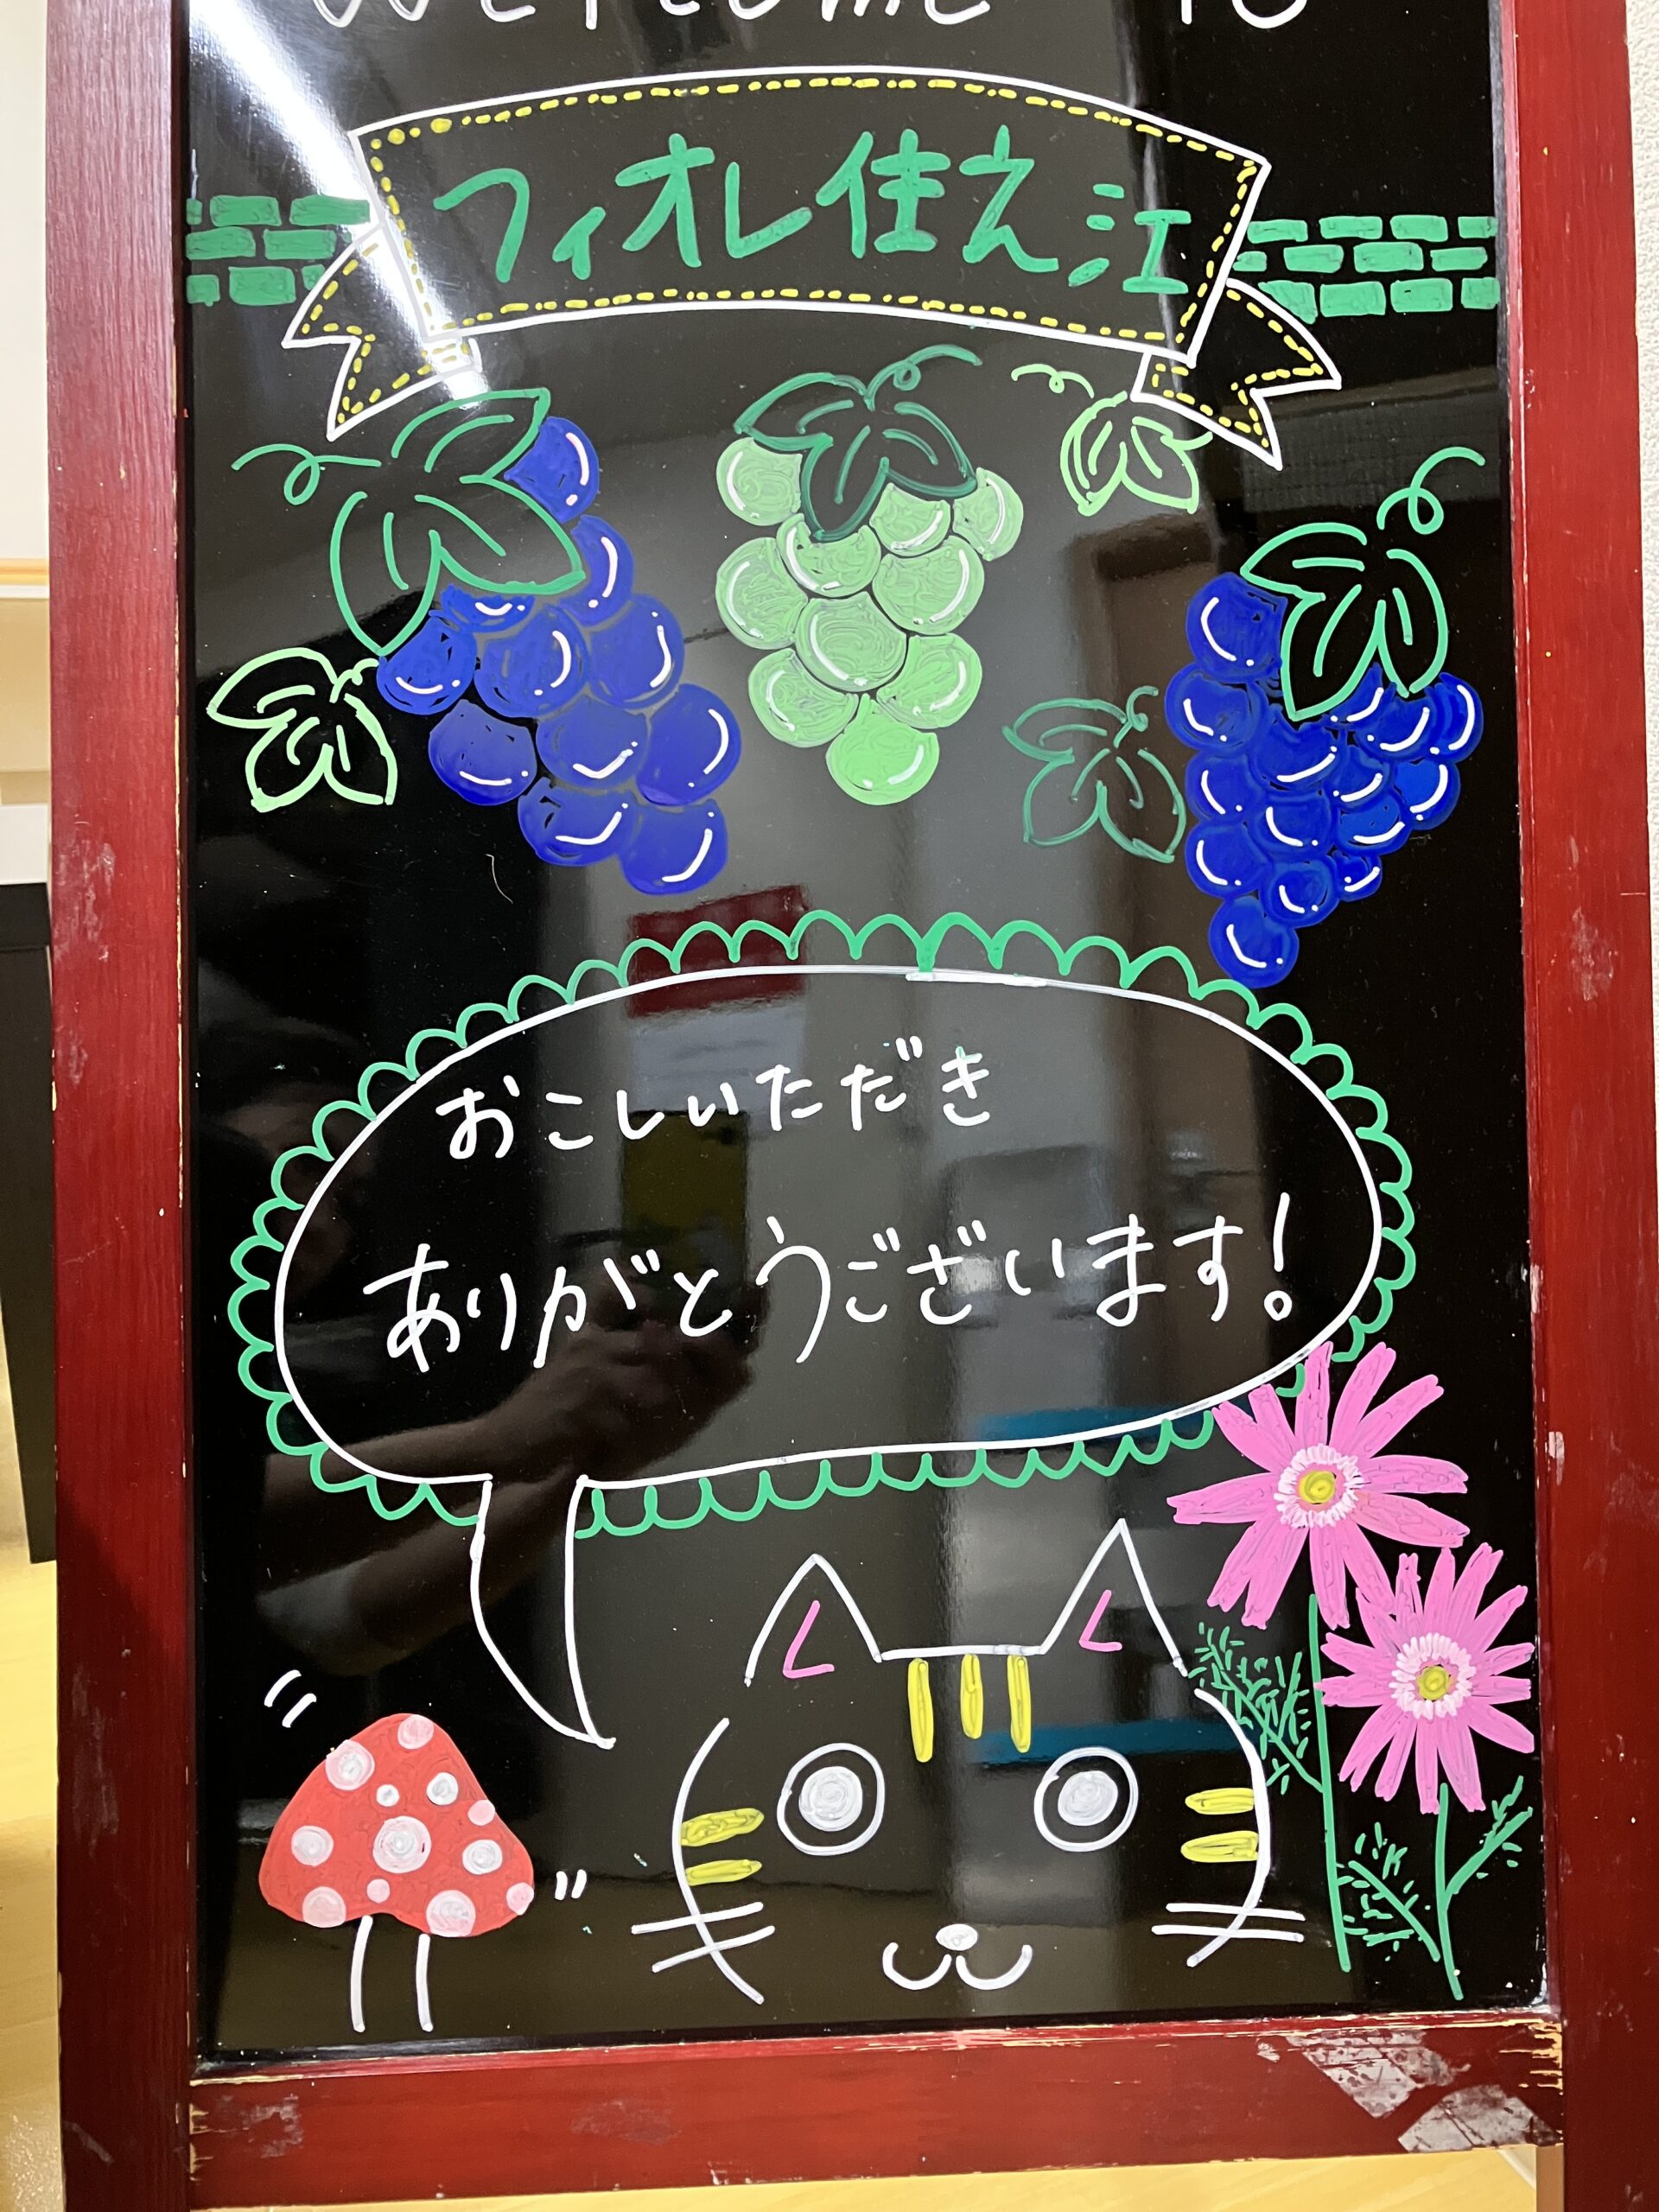 Welcome to
フィオレ住え江
おこしいただき
ありがとうございます!